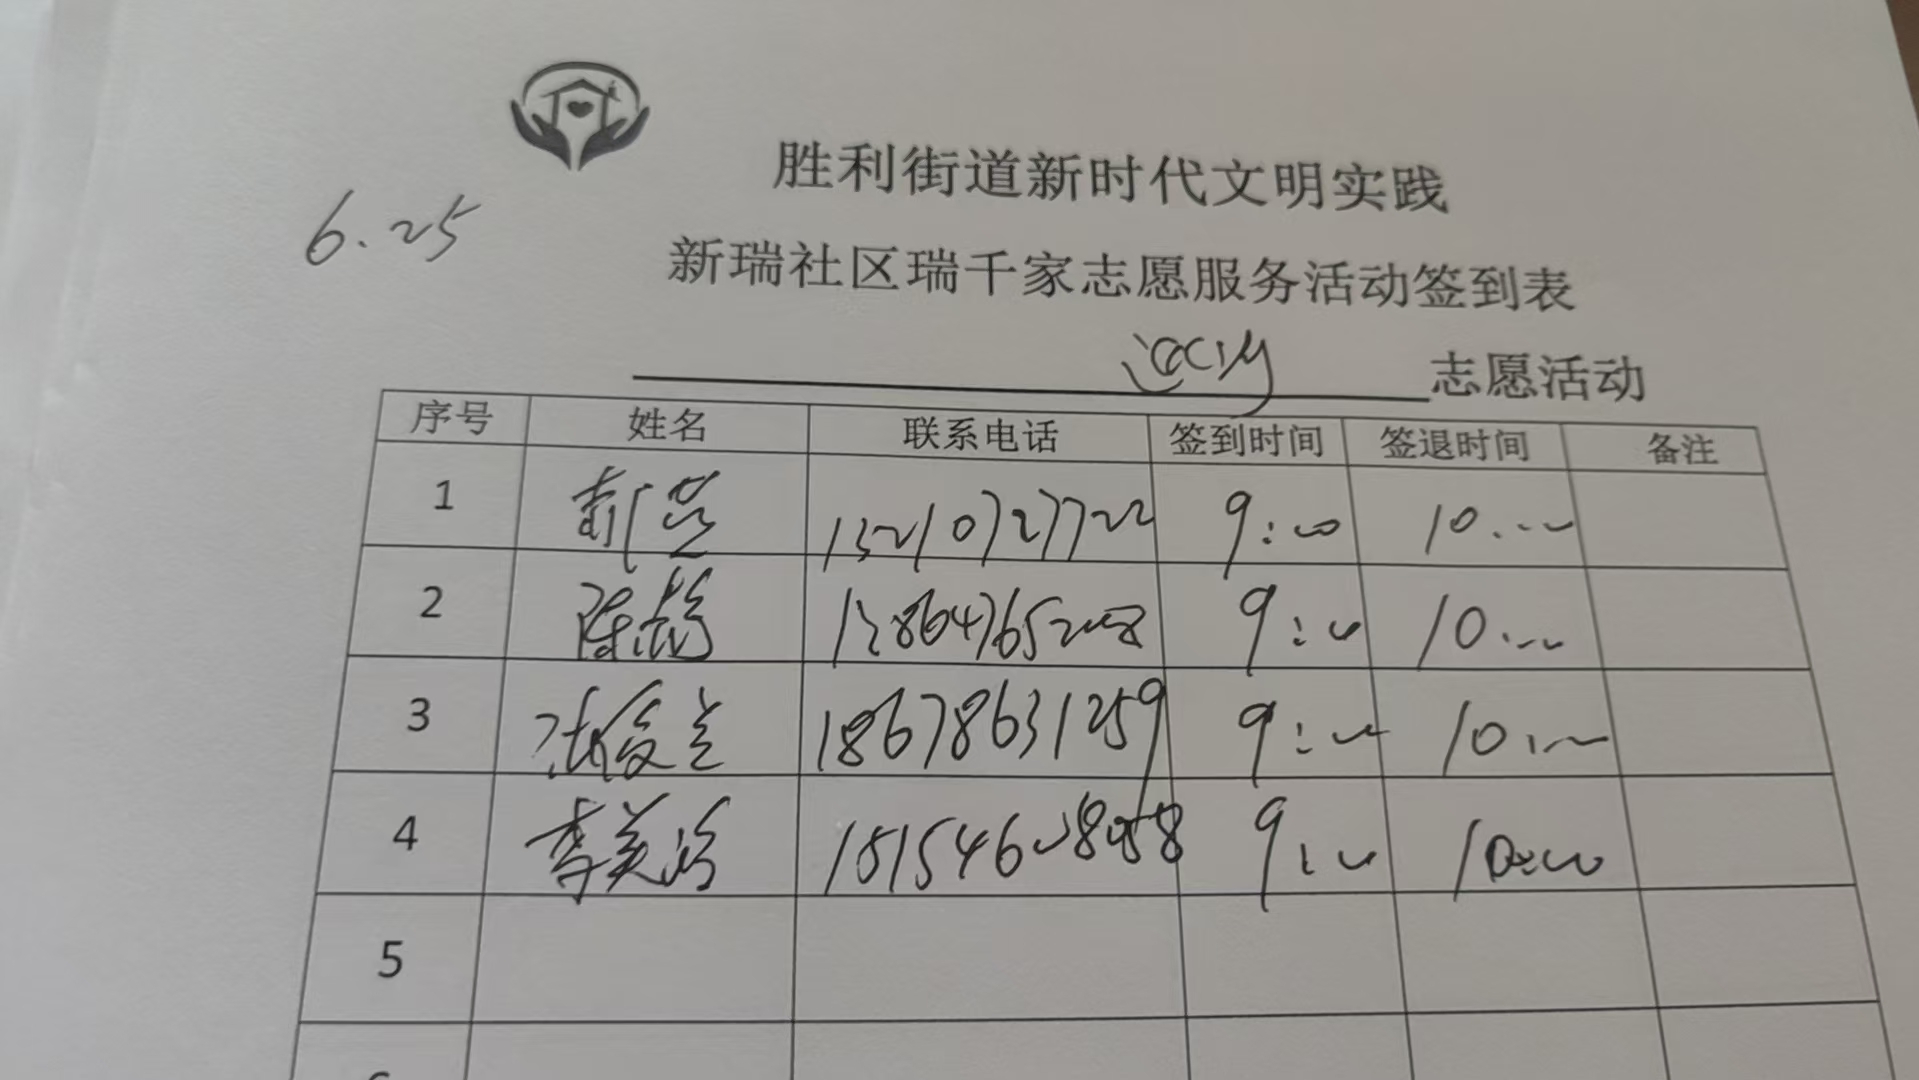 6.25
胜利街道新时代文明实践
新瑞社区瑞千家志愿服务活动签到表
志愿活动
序号 姓名 联系电话 签到时间 签退时间 备注
1 13210727722 9:00 10:00
2 陈 13864765008 9:00 10:00
3 18678631259 9:00 10:00
4 李美玲 9:00 10:00
5